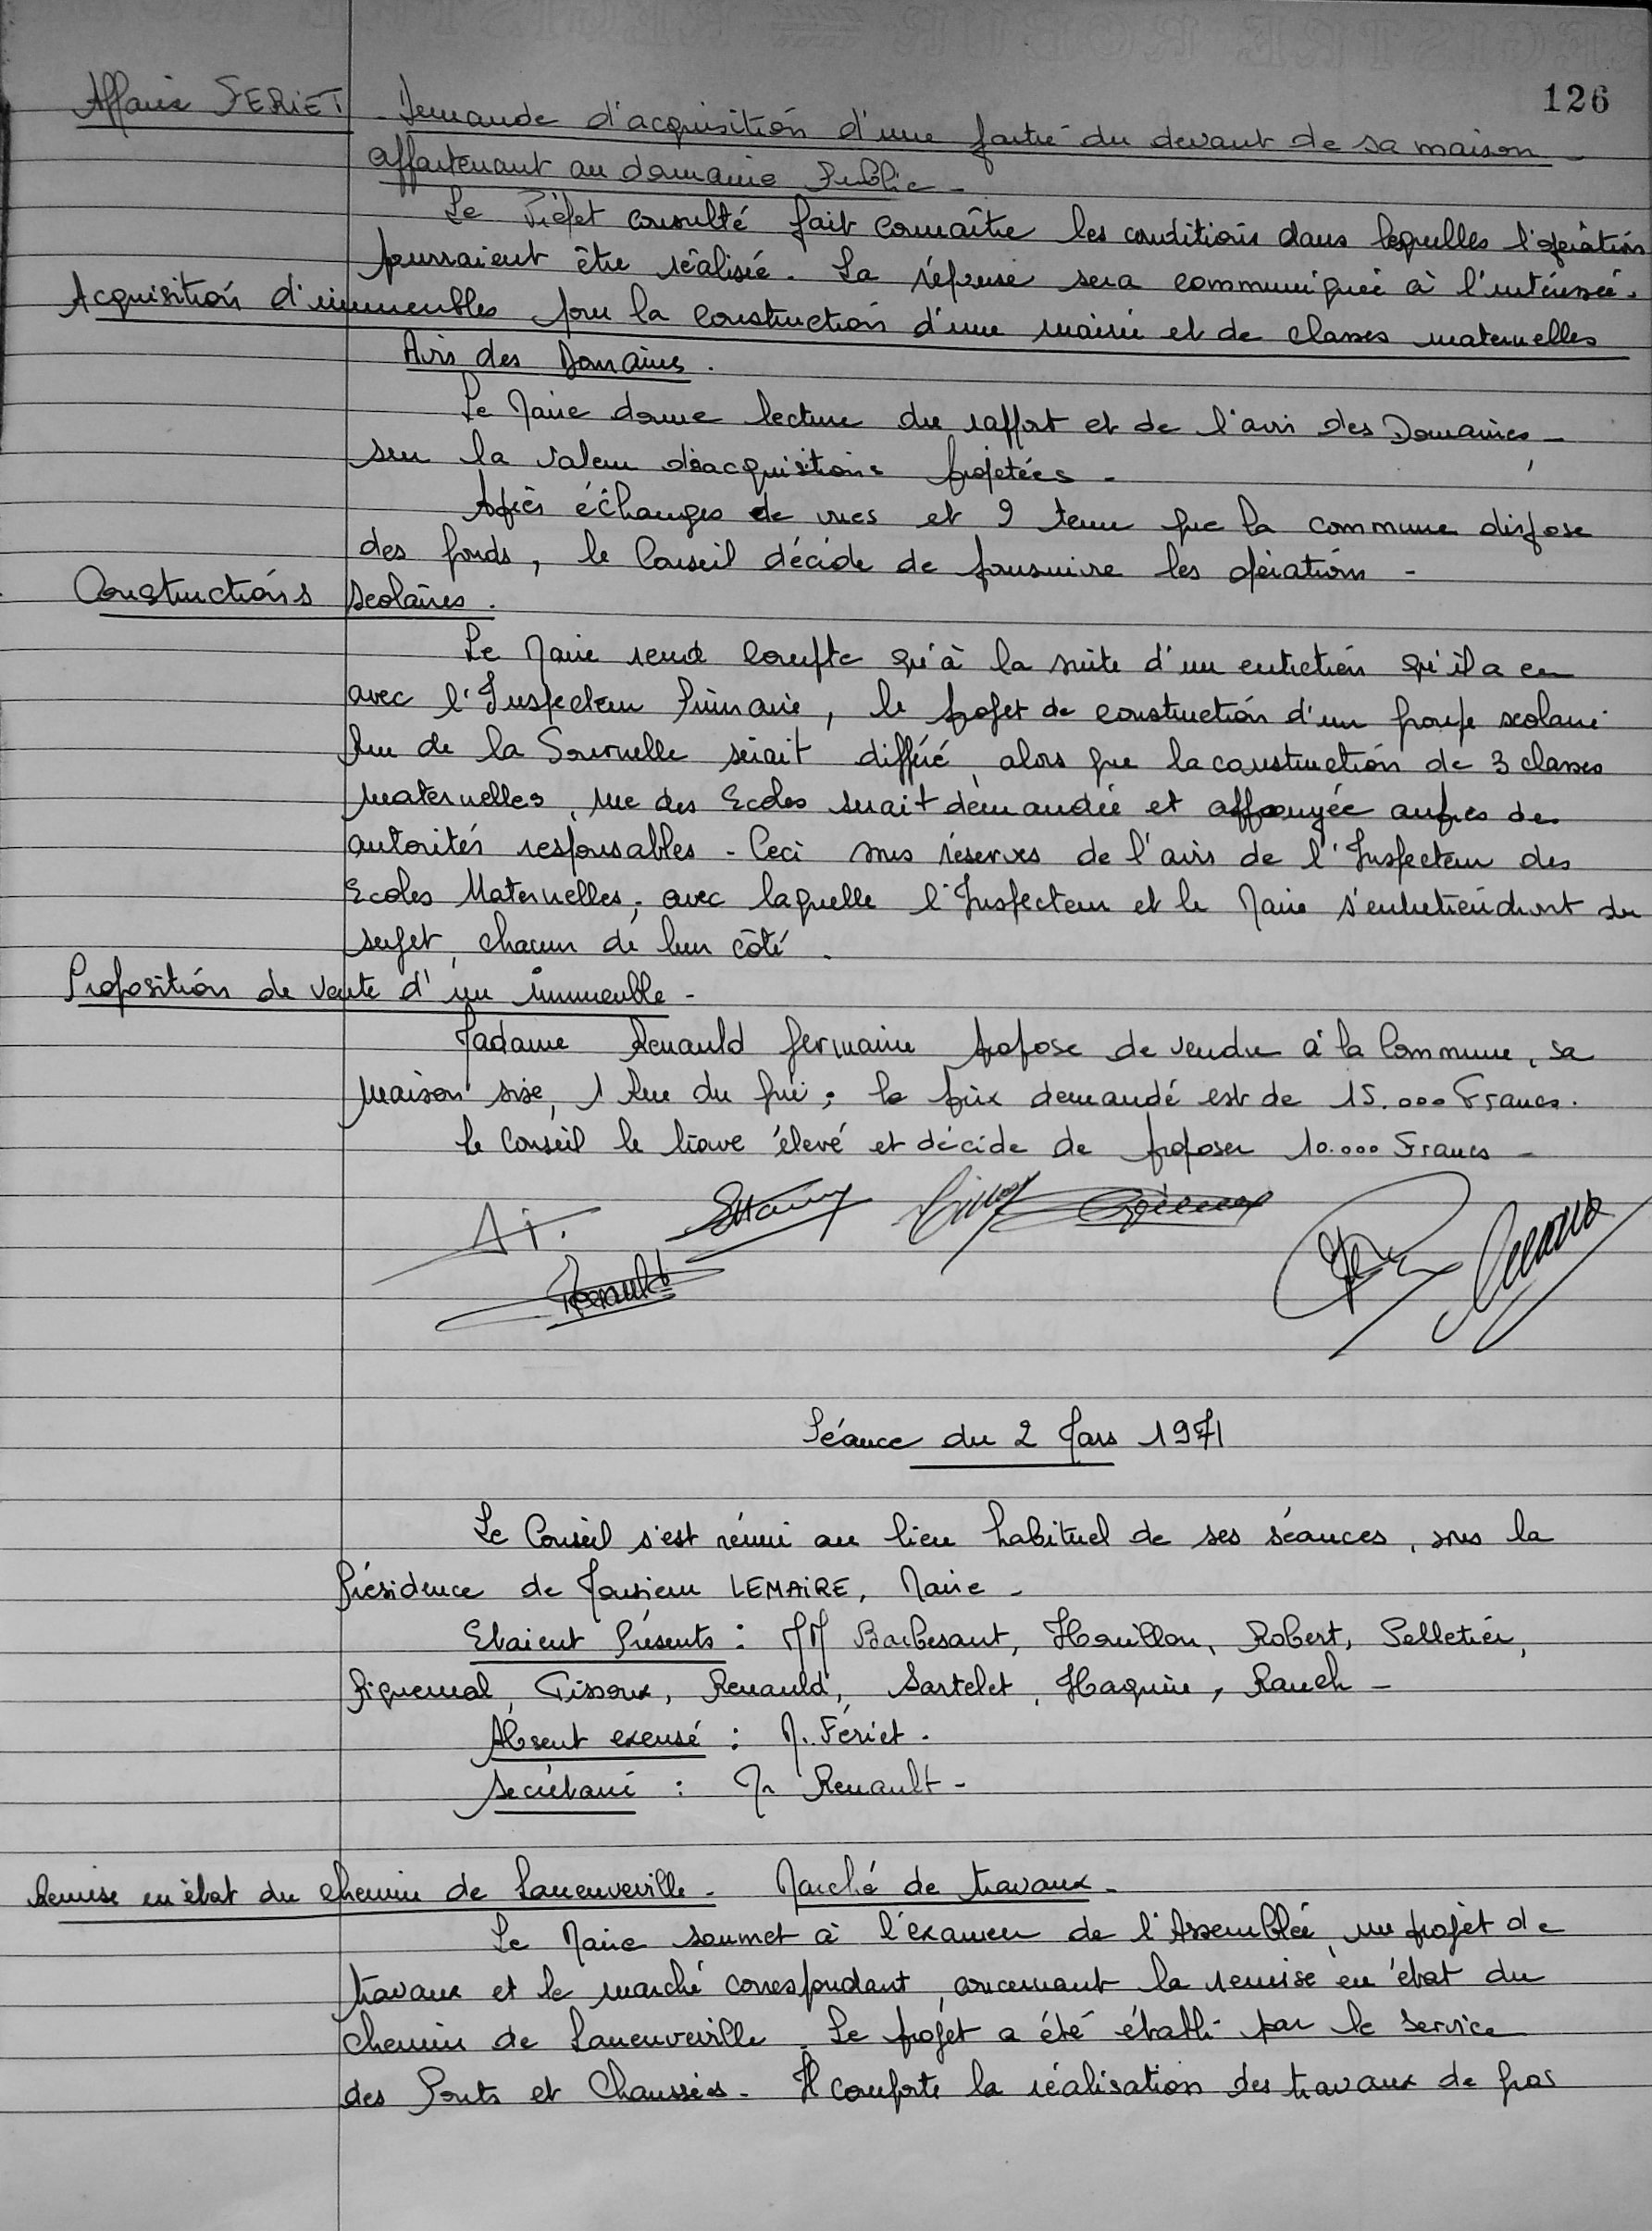 126
Affaire FERIET - Demande d'acquisition d'une partie du devant de sa maison -
appartenant au domaine Public -
Le Préfet consulté fait connaître les conditions dans lesquelles l'opération
pourraient être réalisée. La réponse sera communiquée à l'intéressé.
Acquisition d'immeubles pour la construction d'une mairie et de classes maternelles
Avis des Domaines.
Le Maire donne lecture du rapport et de l'avis des Domaines -
sur la valeur d'acquisitions projetées -
Après échanges de vues et tenu que la commune dispose
des fonds, le Conseil décide de poursuivre les opérations -
Constructions scolaires.
Le Maire rend compte qu'à la suite d'un entretien qu'il a eu
avec l'Inspecteur Primaire, le projet de construction d'un groupe scolaire
Rue de la serait différé, alors que la construction de 3 classes
maternelles, rue des Ecoles serait demandée et appuyée auprès des
autorités responsables - Ceci sous réserves de l'avis de l'Inspecteur des
Ecoles Maternelles, avec laquelle l'Inspecteur et le Maire s'entretiendront du
sujet, chacun de leur côté.
Proposition de vente d'un immeuble -
Madame Renauld Germaine propose de vendre à la Commune, sa
maison sise, 1 Rue du Pré ; le prix demandé est de 15.000 Francs.
Le Conseil le trouve élevé et décide de proposer 10.000 Francs -
Renauld
Séance du 2 Mars 1971
Le Conseil s'est réuni au lieu habituel de ses séances, sous la
Présidence de Monsieur LEMAIRE, Maire -
Etaient Présents : MM Barbesant, Houillon, Robert, Pelletier,
Piquemal, Tissoux, Renauld, Sartelet, Haquin, Rauch -
Absent excusé : M. Fériet.
Secrétaire : Mr Renault -
Remise en état du chemin de Laneuveville - Marché de travaux -
Le Maire soumet à l'examen de l'Assemblée, un projet de
travaux et le marché correspondant, concernant la remise en état du
chemin de Laneuveville. Le projet a été établi par le service
des Ponts et Chaussées. Il comporte la réalisation des travaux de gros